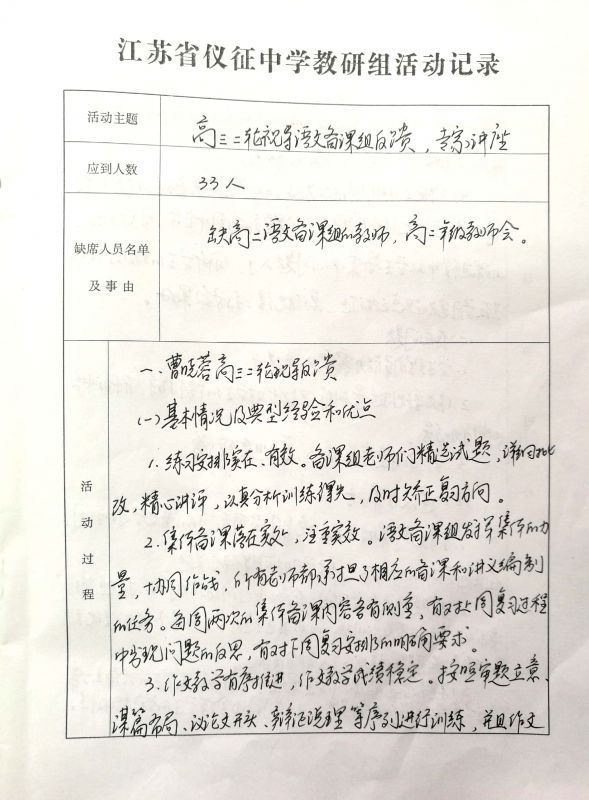 江苏省仪征中学教研组活动记录
活动主题
高三二轮视导语文备课组反馈，专家讲座
应到人数
33人
缺席人员名单
及事由
缺高二语文备课组的教师，高二年级教师会。
活动过程
一、曹晓蓉高三二轮视导反馈
(一)基本情况及典型经验和优点
1.练习安排实在、有效。备课组老师们精选试题，详细批
改，精心讲评，认真分析训练得失，及时矫正复习方向。
2.集体备课落在实处，注重实效。语文备课组发挥集体的力
量，协同作战，所有老师都承担了相应的备课和讲义编制
的任务。每周两次的集体备课内容各有侧重，有对上周复习过程
中出现问题的反思，有对下周复习安排的明确要求。
3.作文教学有序推进，作文教学成绩稳定。按照审题立意、
谋篇布局、议论文开头、辩证说理等序列进行训练，并且作文